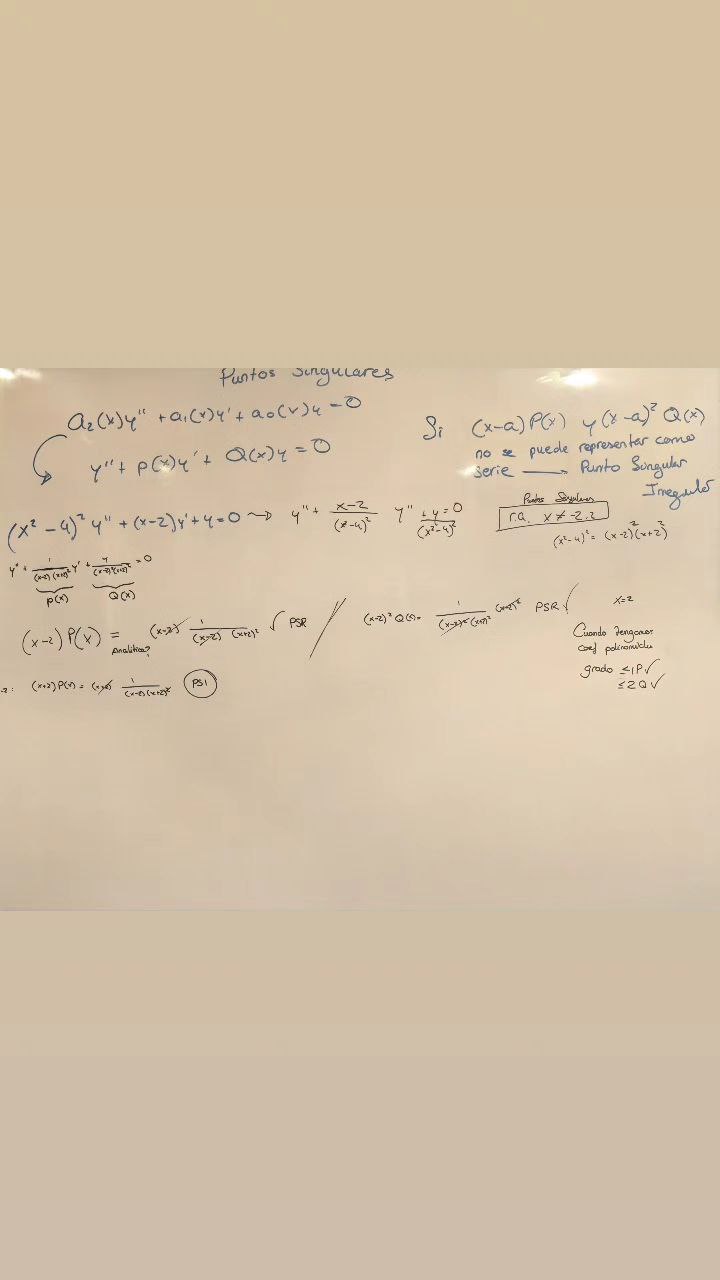 Puntos Singulares
a₂(x)y'' + a₁(x)y' + a₀(x)y = 0
y'' + p(x)y' + Q(x)y = 0
Si (x-a)P(x) y (x-a)² Q(x)
no se puede representar como
serie → Punto Singular
Irregular
(x² - 4)² y'' + (x-2)y' + y = 0 ⇝ y'' + (x-2)/(x²-4)² y'' + y/(x²-4)² = 0
Puntos Singulares
r.a. x ≠ -2, 2
(x²-4)² = (x-2)²(x+2)²
y'' + 1/((x-2)(x+2)²) y' + y/((x-2)²(x+2)²) = 0
P(x) Q(x)
(x-2)P(x) = (x-2) 1/((x-2)(x+2)²) √ PSR
Analítica?
(x-2)² Q(x) = 1/((x-2)²(x+2)²) (x-2)² PSR √
x=2
Cuando tengamos
coef polinomiales
grado ≤ 1 P √
≤ 2 Q √
-2: (x+2)P(x) = (x+2) 1/((x-2)(x+2)²) PSI